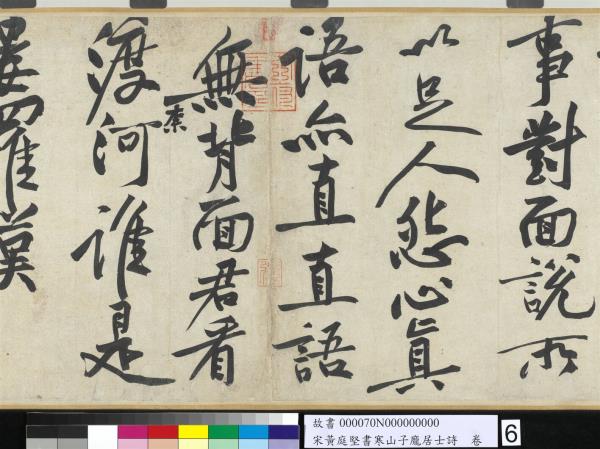 事對面說所
以足人怨心真
語亦直直語
無背面君看
渡柰河誰是
故書 000070N000000000
宋黃庭堅書寒山子龐居士詩 卷
6